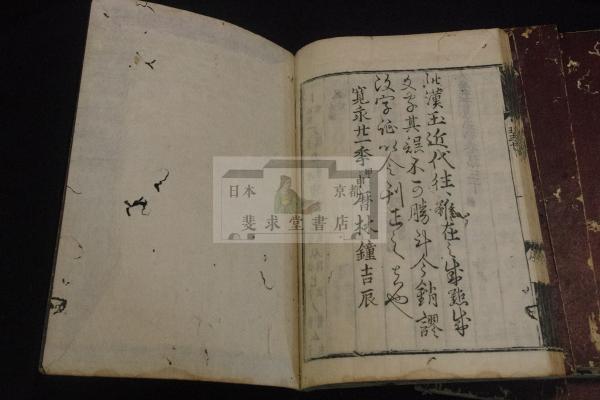 此漢玉近代往〻雖在之或點或
文字其誤不可勝斗今銷謬
改字證以令刊正之者也
寛永廿一季暦林鐘吉辰
日本 京都
斐求堂書店